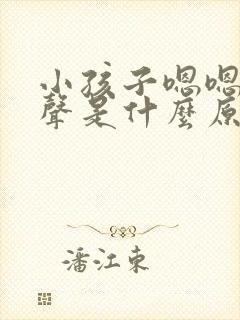 小孩子嗯嗯
聲是什麼原
潘江東